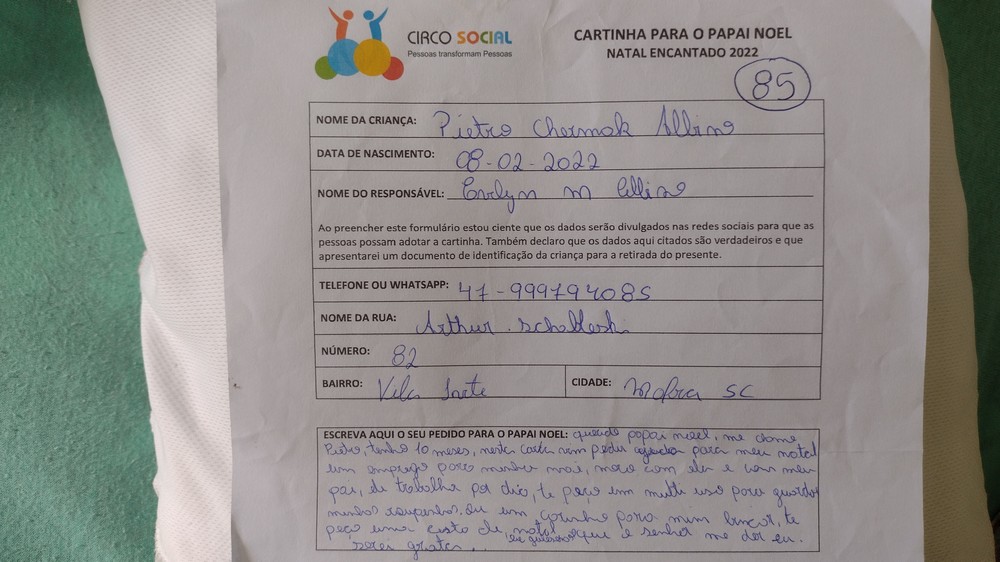 CIRCO SOCIAL
Pessoas transformam Pessoas
CARTINHA PARA O PAPAI NOEL
NATAL ENCANTADO 2022
85
NOME DA CRIANÇA: Pietro Chermak Albino
DATA DE NASCIMENTO: 08-02-2022
NOME DO RESPONSÁVEL: Evelyn M Albino
Ao preencher este formulário estou ciente que os dados serão divulgados nas redes sociais para que as
pessoas possam adotar a cartinha. Também declaro que os dados aqui citados são verdadeiros e que
apresentarei um documento de identificação da criança para a retirada do presente.
TELEFONE OU WHATSAPP: 47-999794085
NOME DA RUA: Arthur
NÚMERO: 82
BAIRRO: Vila
CIDADE: Mafra SC
ESCREVA AQUI O SEU PEDIDO PARA O PAPAI NOEL: querido papai noel, me chamo
Pietro, tenho 10 meses, nesta carta vem pedir ajuda para meu natal
um emprego para minha mãe, moro com ela e com meu
pai, ele trabalha por dia, te peço um multi uso para guardar
minhas roupinhas, ou um carrinho para mim brincar, te
peço uma cesta de natal, que o senhor me der eu
serei